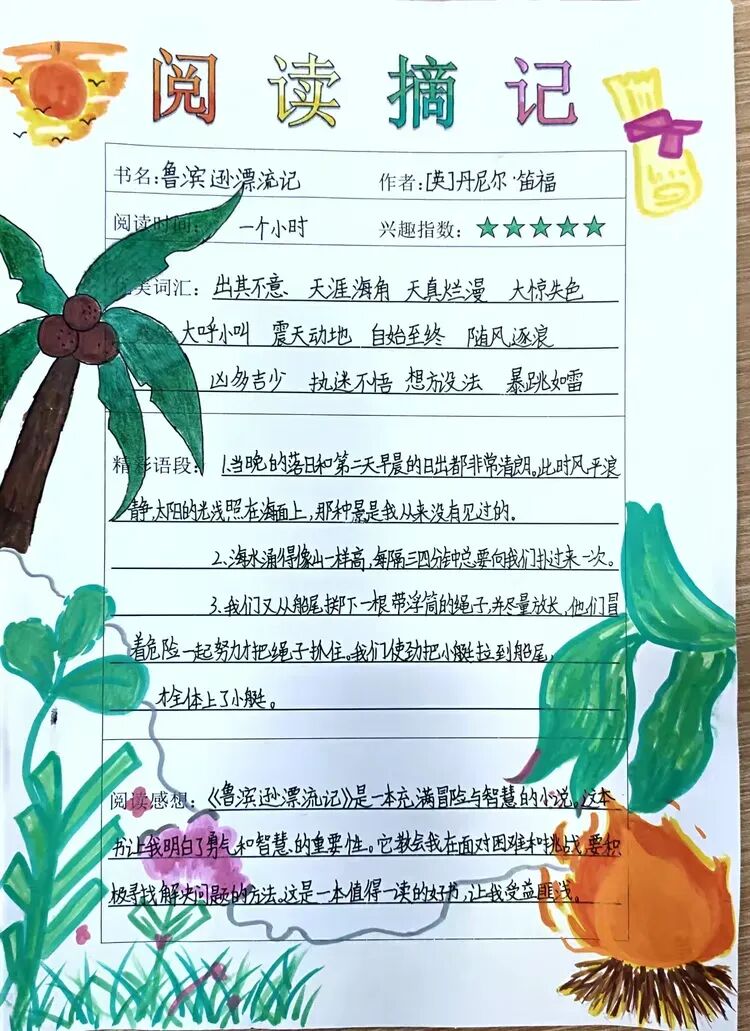 阅读摘记
书名:鲁滨逊漂流记 作者:[英]丹尼尔·笛福
阅读时间: 一个小时 兴趣指数:★★★★★
优美词汇: 出其不意、天涯海角 天真烂漫 大惊失色
大呼小叫 震天动地 自始至终 随风逐浪
凶多吉少 执迷不悟 想方设法 暴跳如雷
精彩语段: 1.当晚的落日和第二天早晨的日出都非常清朗。此时风平浪
静,太阳的光线照在海面上,那种景是我从来没有见过的。
2.海水涌得像山一样高,每隔三四分钟总要向我们扑过来一次。
3.我们又从船尾掷下一根带浮筒的绳子,并尽量放长,他们冒
着危险一起努力才把绳子抓住。我们使劲把小艇拉到船尾,
才全体上了小艇。
阅读感想:《鲁滨逊漂流记》是一本充满冒险与智慧的小说。这本
书让我明白了勇气和智慧的重要性。它教会我在面对困难和挑战,要积
极寻找解决问题的方法。这是一本值得一读的好书,让我受益匪浅。